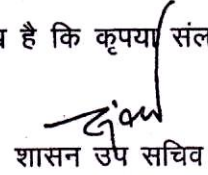 है कि कृपया संल
शासन उप सचिव